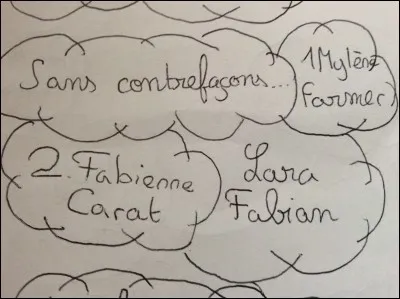 Sans contrefaçons...
1 Mylène
Farmer
2. Fabienne
Carat
Lara
Fabian